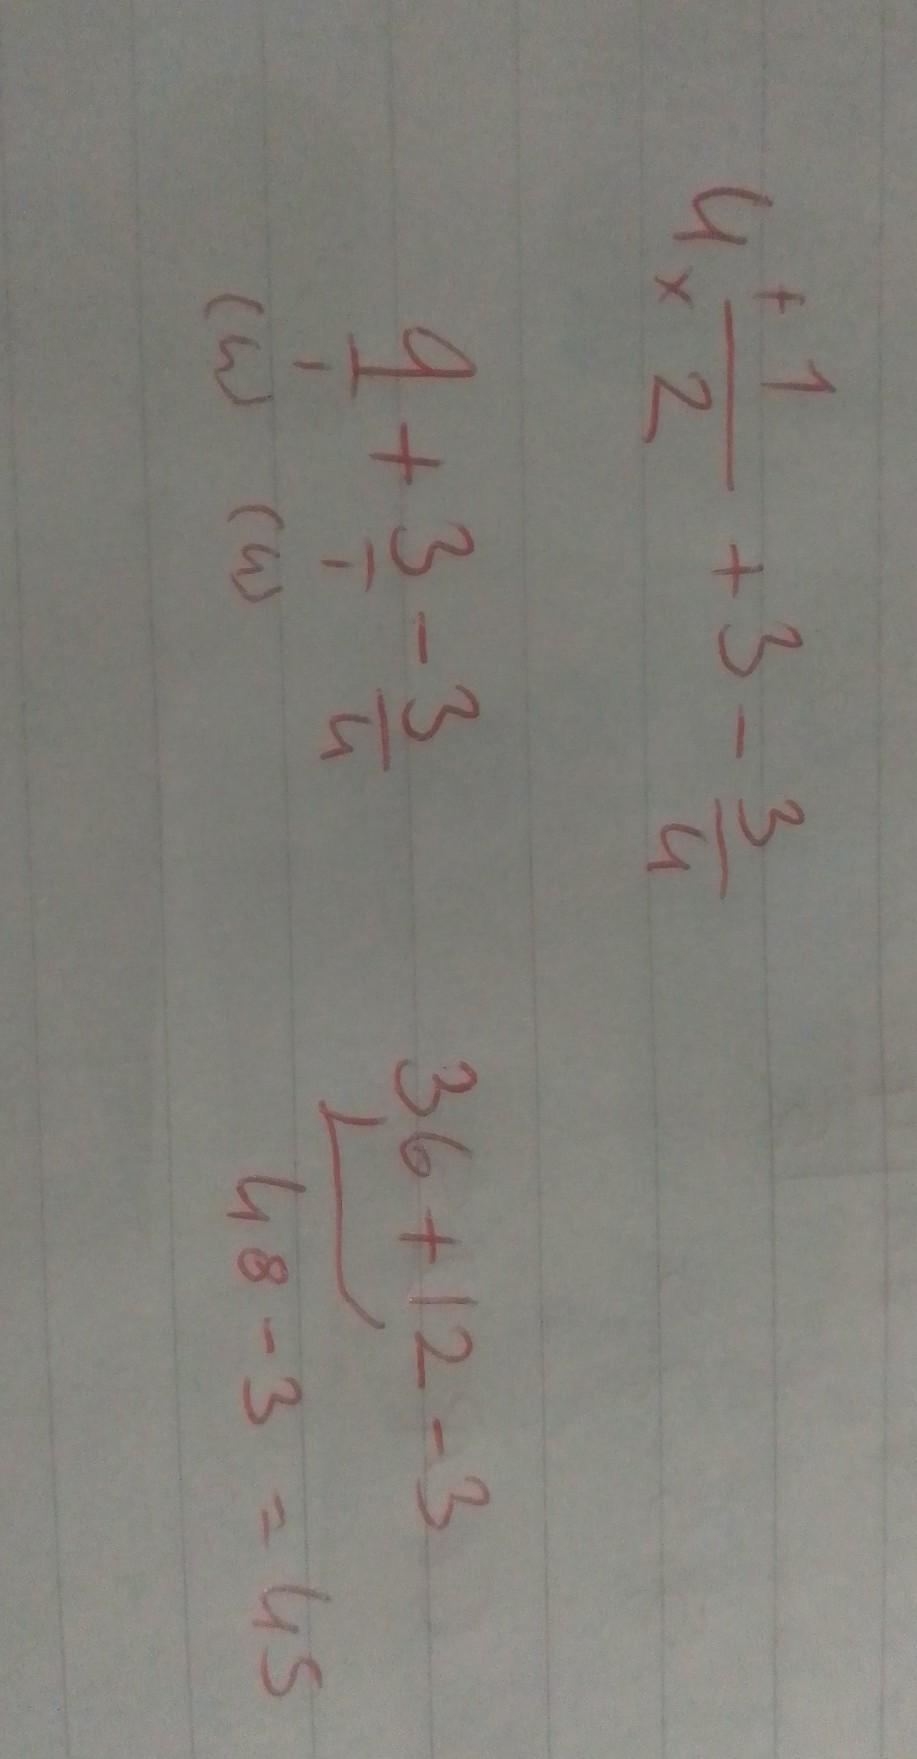 4 + 1/× 2 + 3 - 3/4
9/1 + 3/1 - 3/4
(4) (4)
36 + 12 - 3
48 - 3 = 45